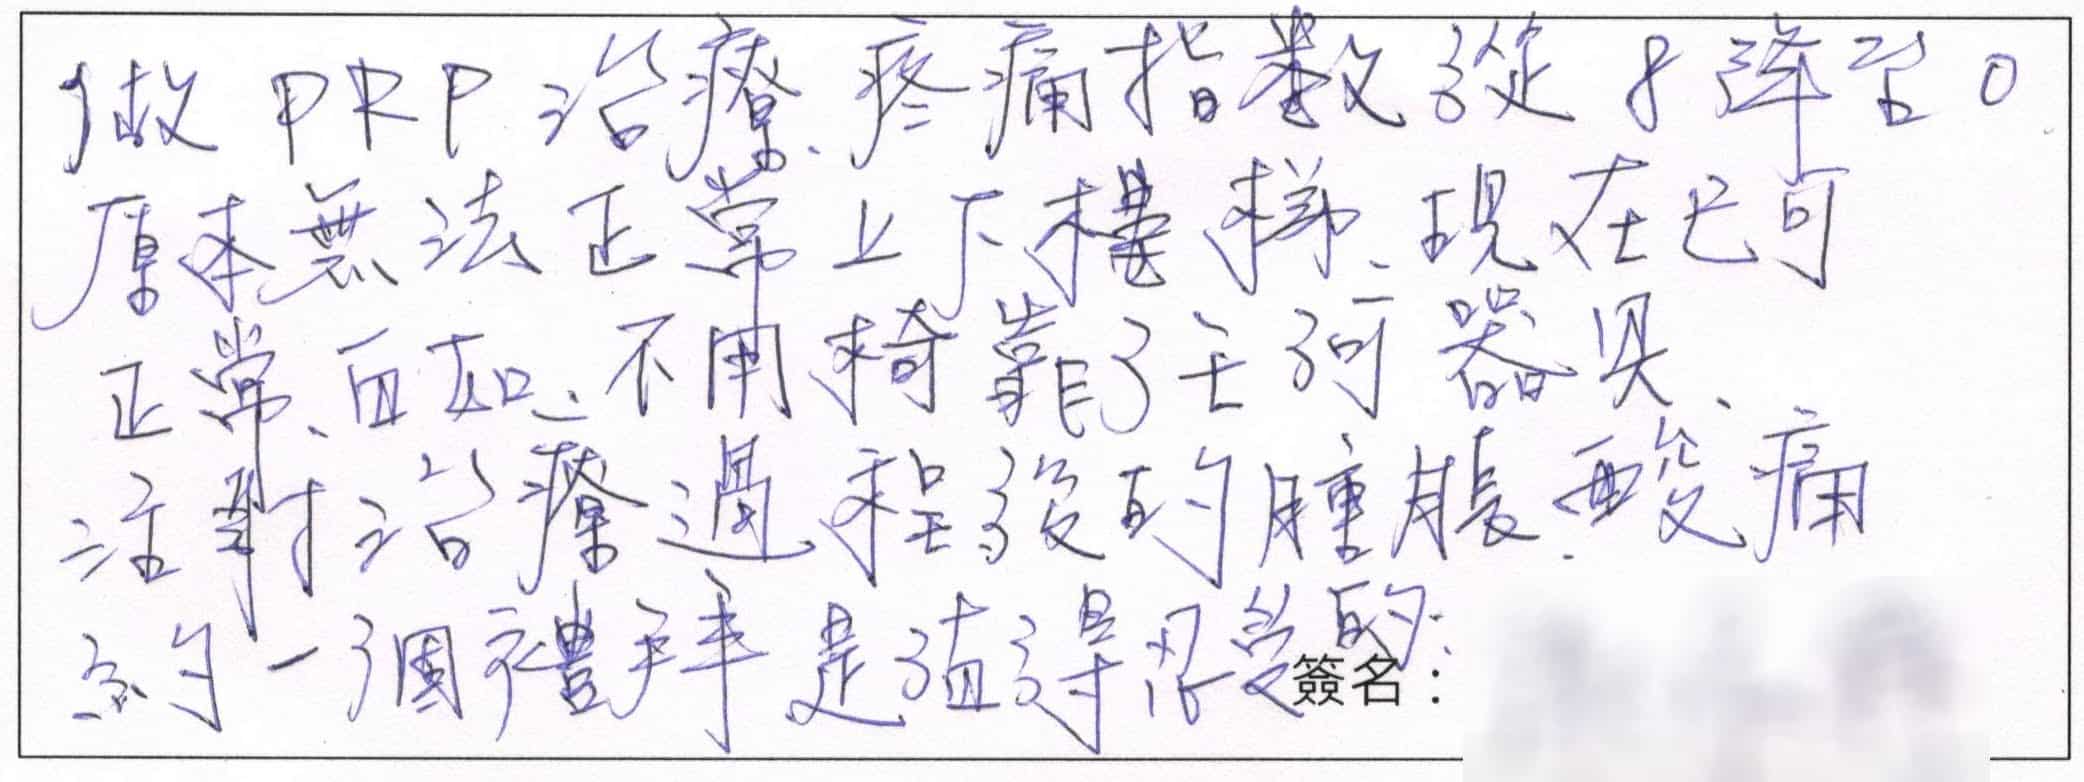 做PRP治療、疼痛指數從8降至0
原本無法正常上下樓梯、現在已可
正常、自如、不用椅靠了任何器具、
注射治療過程後的腫脹、酸痛
約一個禮拜是值得忍受的.
簽名：